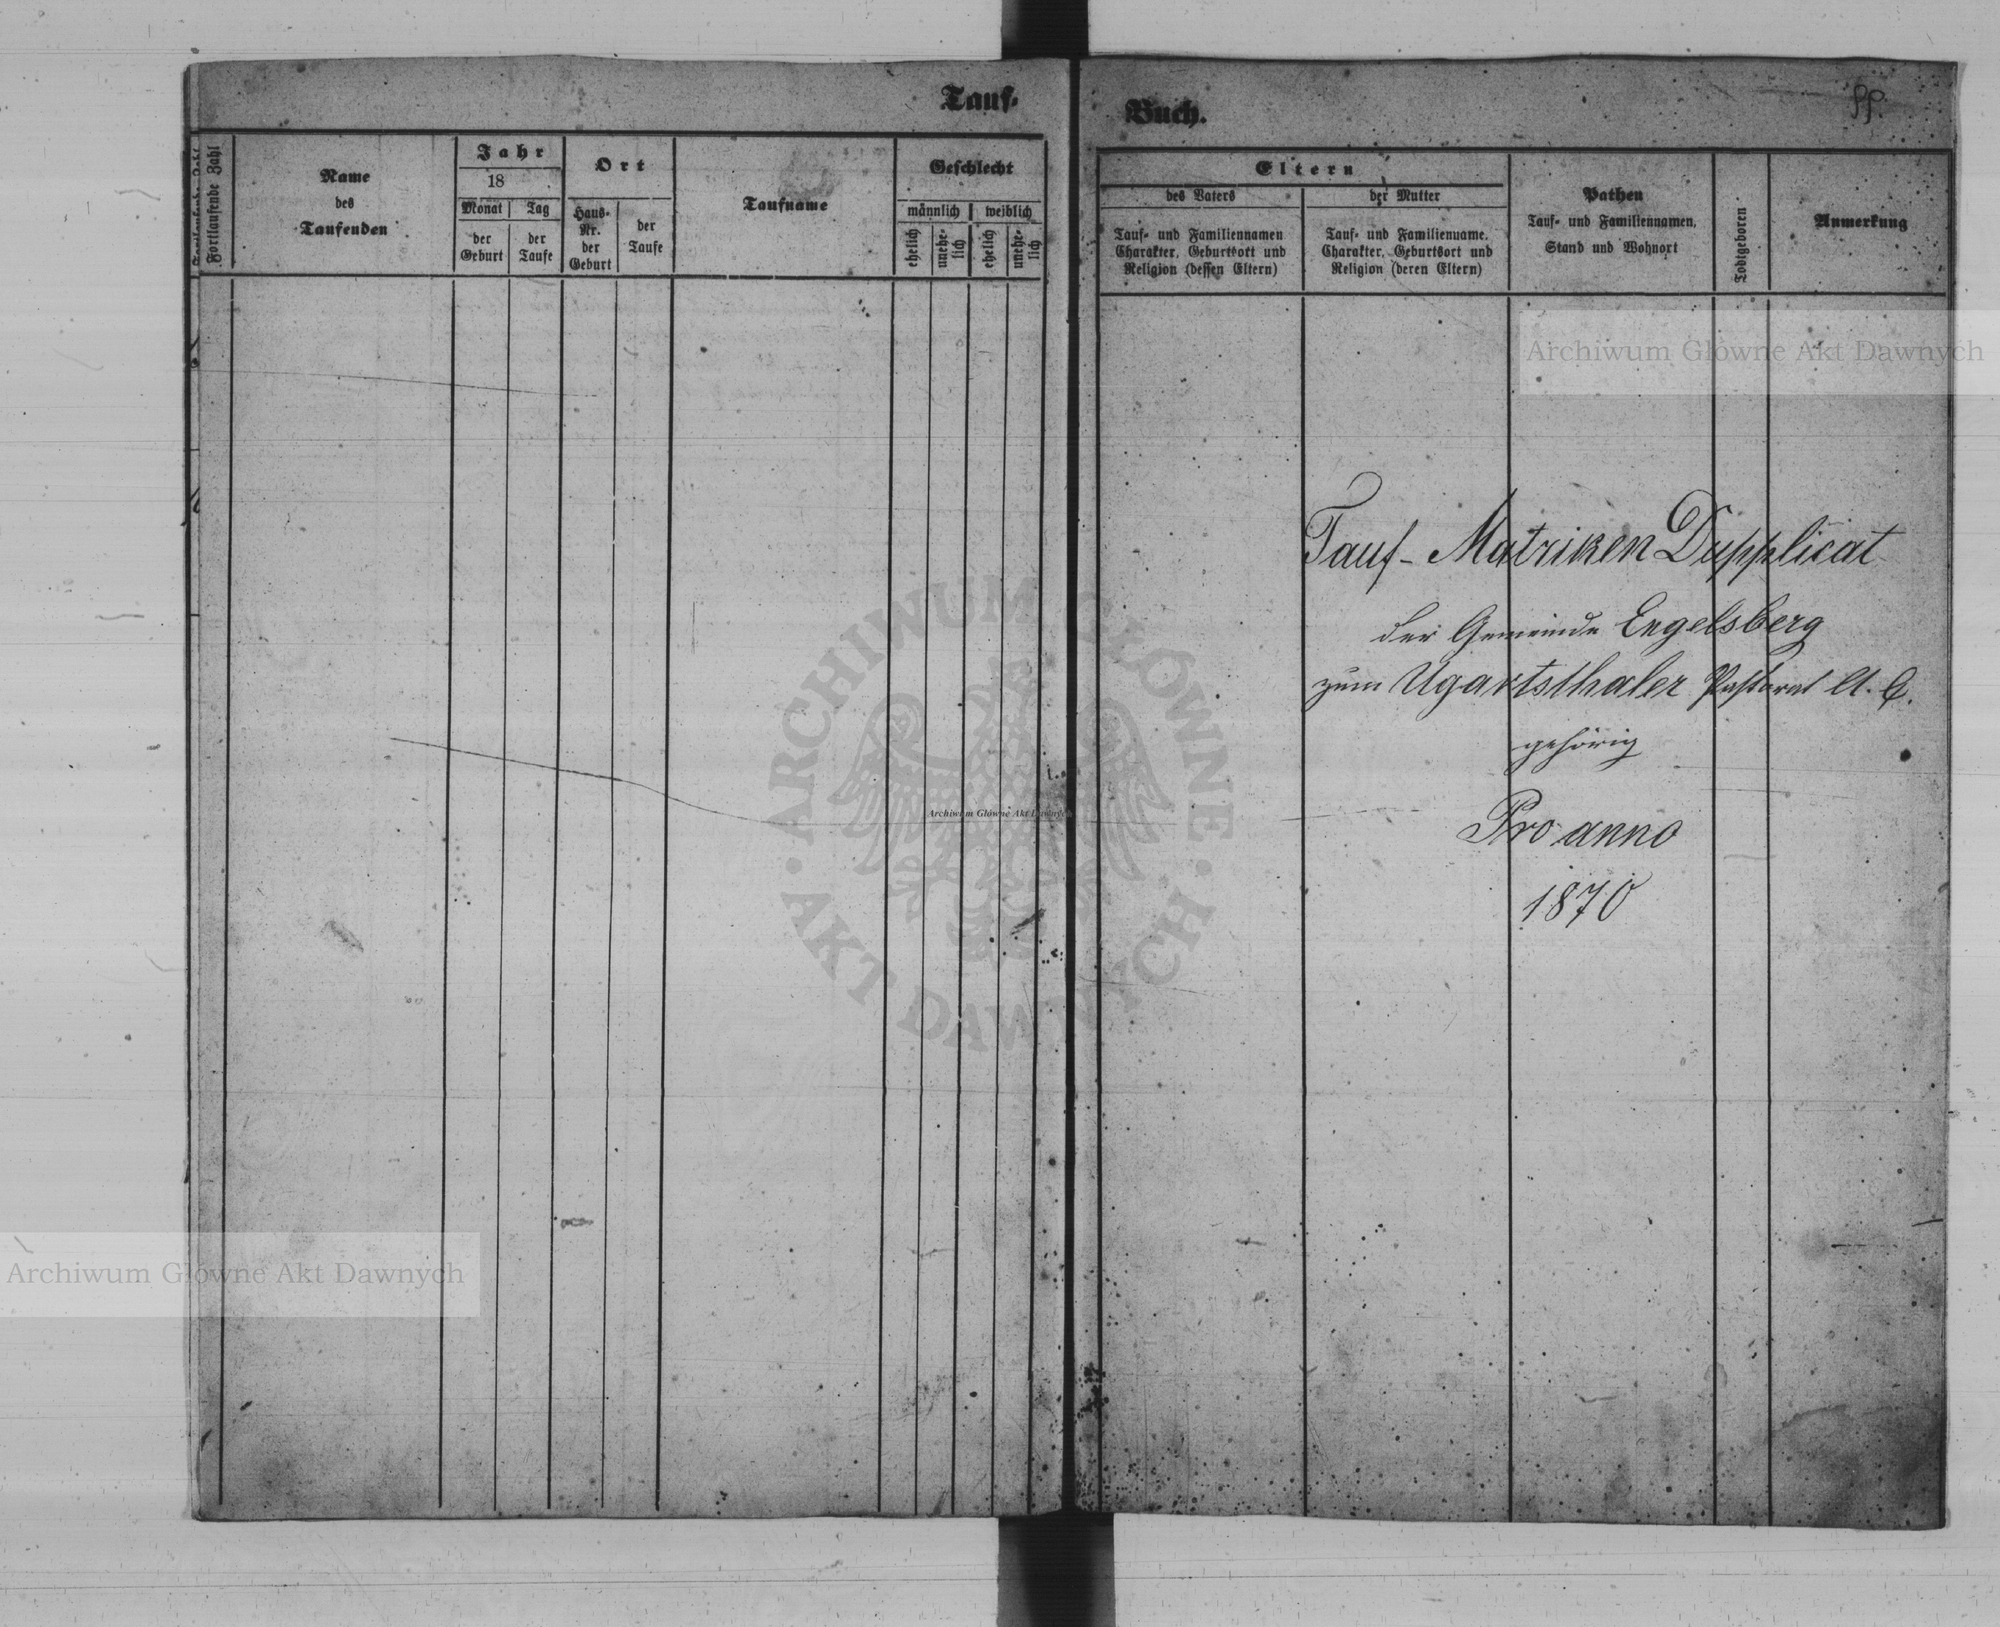 Tauf-
Fortlaufende Zahl
Name
des
Taufenden
Jahr
18
Monat
Tag
der
Geburt
der
Taufe
Ort
Haus-
Nr.
der
Geburt
der
Taufe
Taufname
Geschlecht
männlich
weiblich
ehelich
unehe-
lich
ehelich
unehe-
lich
Buch.
Eltern
des Vaters
Tauf- und Familiennamen
Charakter, Geburtsort und
Religion (dessen Eltern)
der Mutter
Tauf- und Familienname.
Charakter, Geburtsort und
Religion (deren Eltern)
Pathen
Tauf- und Familiennamen,
Stand und Wohnort
Todtgeboren
Anmerkung
Archiwum Główne Akt Dawnych
Tauf-Matriken Dupplicat
der Gemeinde Engelsberg
zum Ugartsthaler Pastorat A. C.
gehörig
Pro anno
1870
ARCHIWUM GŁÓWNE · AKT DAWNYCH ·
Archiwum Główne Akt Dawnych
Archiwum Główne Akt Dawnych